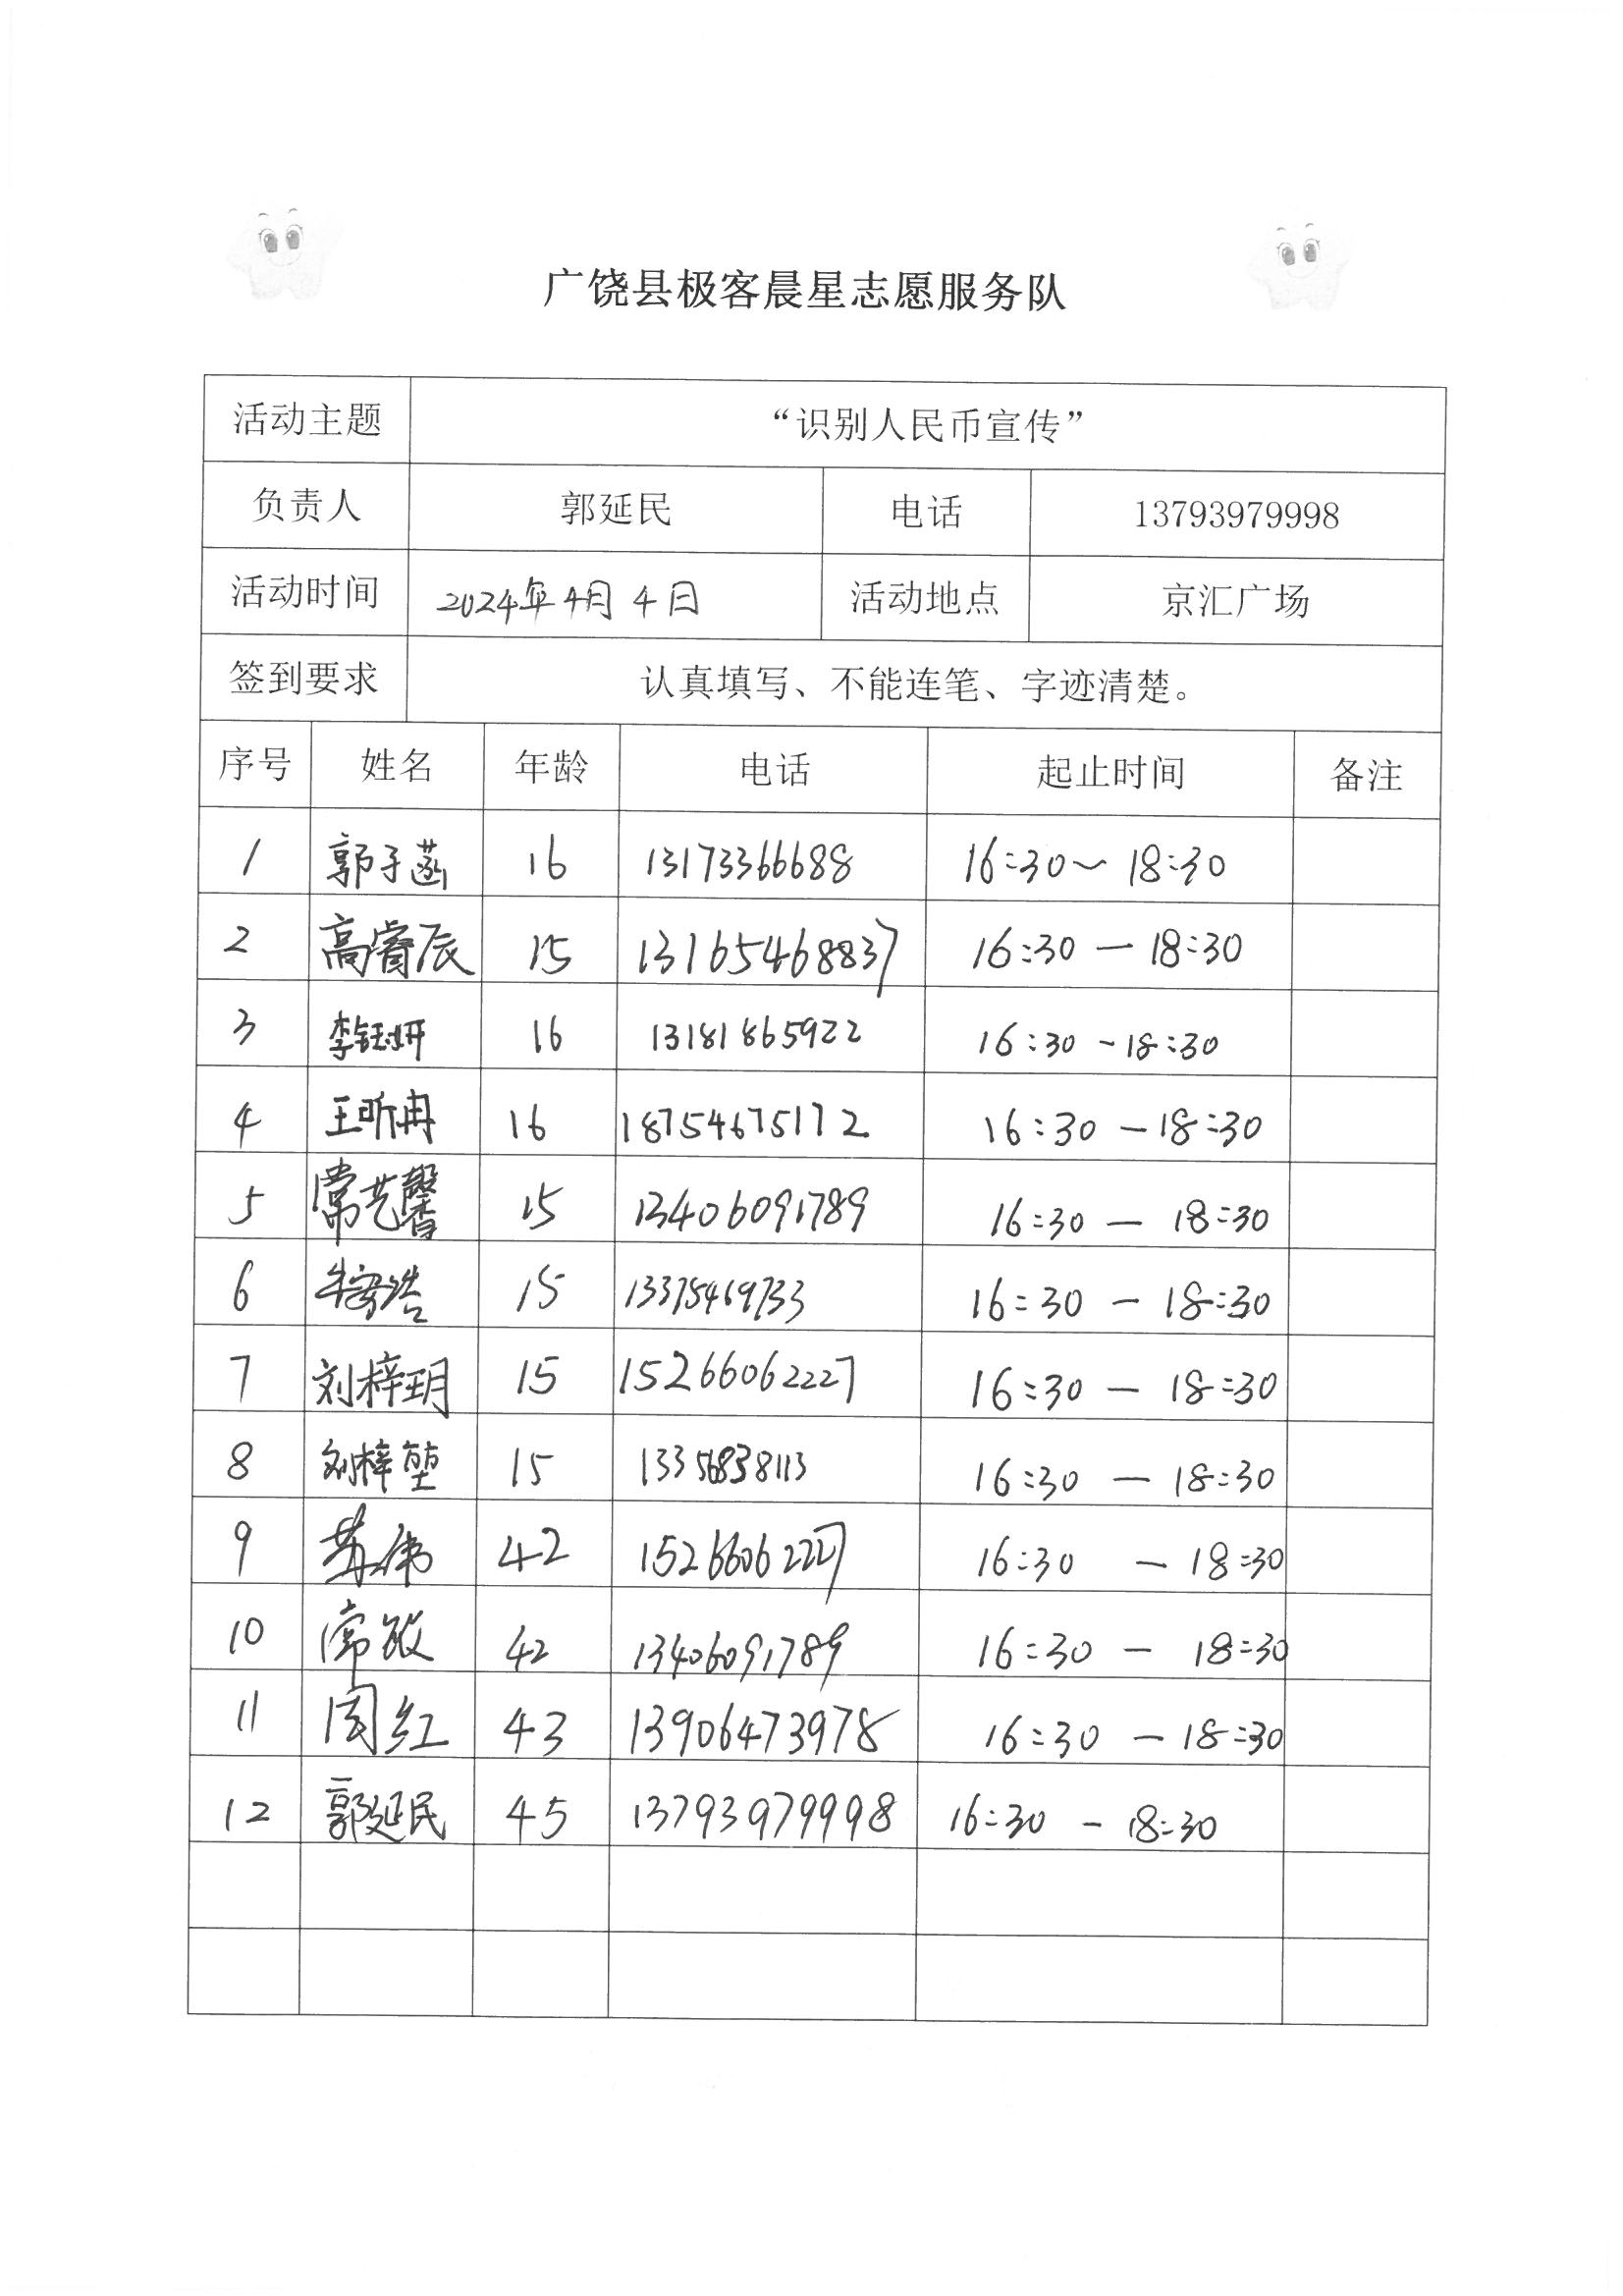 广饶县极客晨星志愿服务队
活动主题 “识别人民币宣传”
负责人 郭延民 电话 13793979998
活动时间 2024年4月4日 活动地点 京汇广场
签到要求 认真填写、不能连笔、字迹清楚。
序号 姓名 年龄 电话 起止时间 备注
1 郭子菡 16 13173366688 16:30～18:30
2 高睿辰 15 13165468837 16:30—18:30
3 李钰妍 16 13181865922 16:30-18:30
4 王昕冉 16 18754675172 16:30—18:30
5 常艺馨 15 13406091789 16:30—18:30
6 15 13375469733 16:30—18:30
7 刘梓玥 15 15266062227 16:30—18:30
8 刘梓堃 15 13356838113 16:30—18:30
9 苏伟 42 15266062227 16:30—18:30
10 常敏 42 13406091789 16:30—18:30
11 周红 43 13906473978 16:30—18:30
12 郭延民 45 13793979998 16:30-18:30